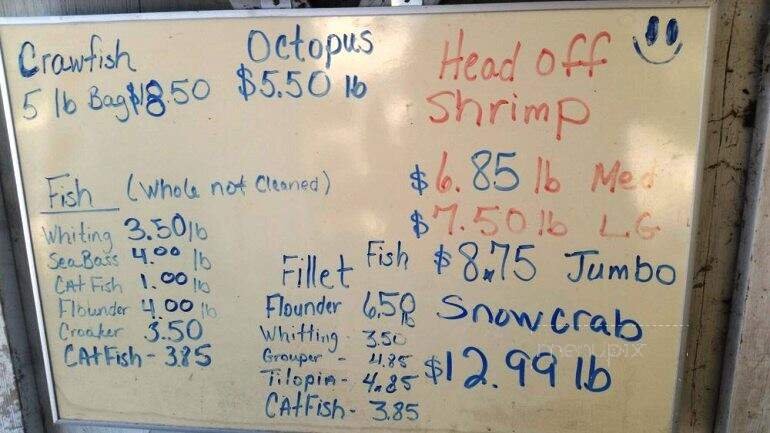 Crawfish
5 lb Bag $18.50
Octopus
$5.50 lb
Head off
Shrimp
$6.85 lb Med
$7.50 lb LG
$8.75 Jumbo
Snowcrab
$12.99 lb
Fish (Whole not Cleaned)
Whiting 3.50 lb
Sea Bass 4.00 lb
CAt Fish 1.00 lb
Flounder 4.00 lb
Croaker 3.50
CAtFish - 3.85
Fillet Fish
Flounder 6.50 lb
Whitting - 3.50
Grouper - 4.85
Tilopia - 4.85
CAtFish - 3.85
menupix